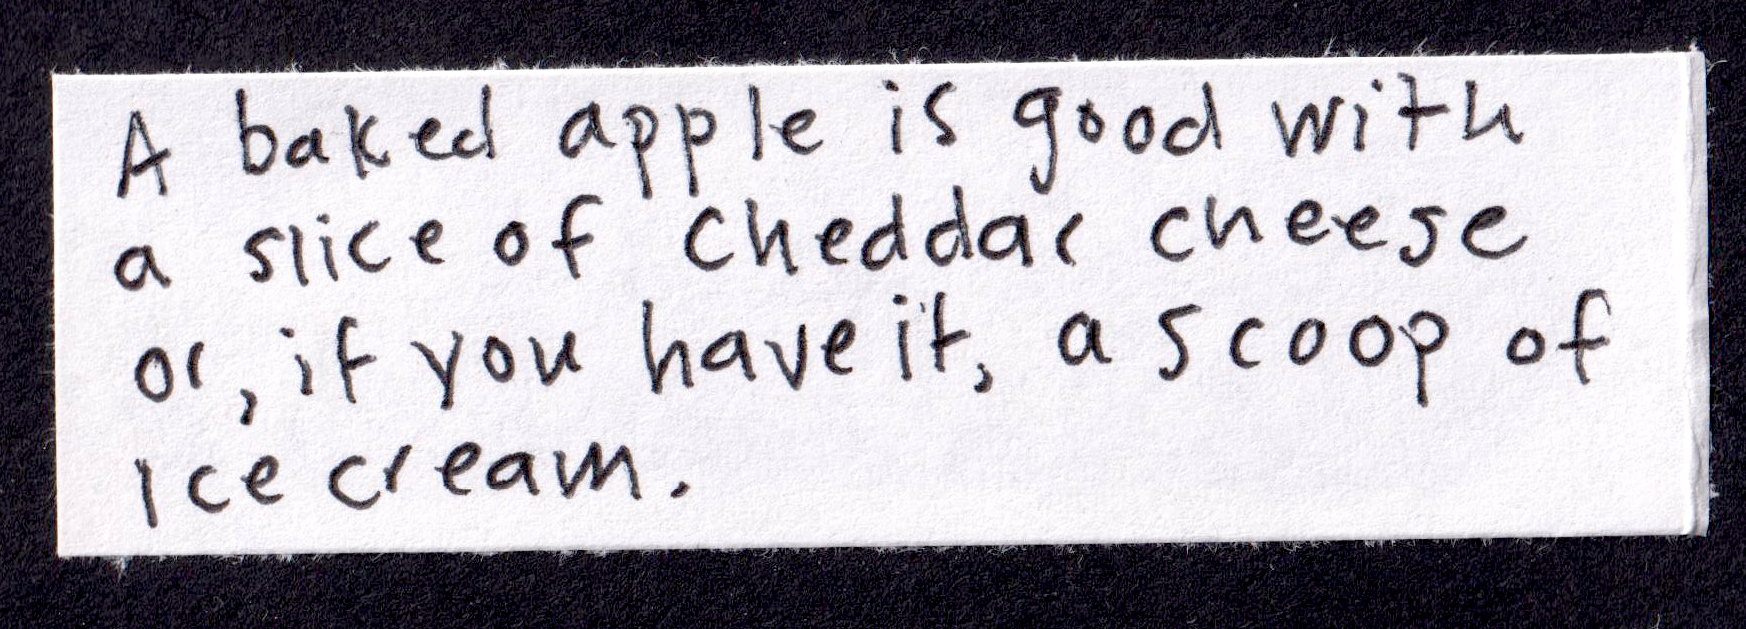 A baked apple is good with
a slice of cheddar cheese
or, if you have it, a scoop of
ice cream.